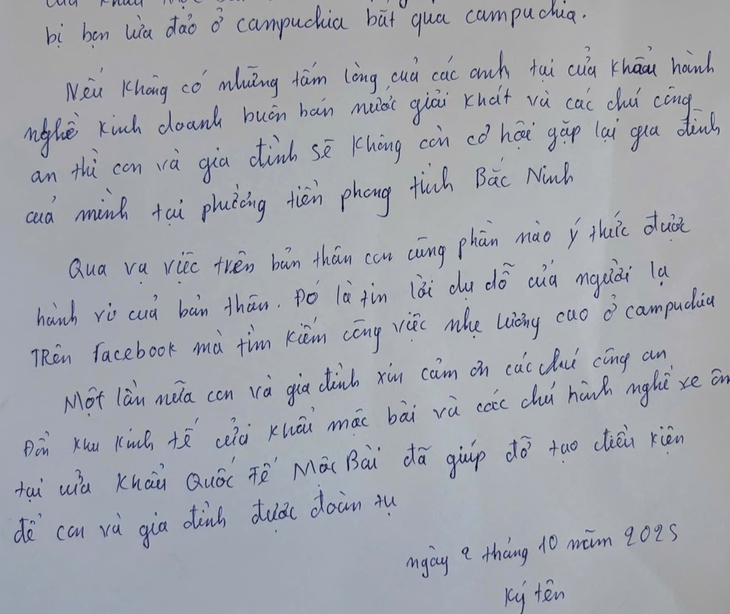 cửa khẩu mộc bài
bị bọn lừa đảo ở campuchia bắt qua campuchia.
Nếu không có những tấm lòng của các anh tại cửa khẩu hành
nghề kinh doanh buôn bán nước giải khát và các chú công
an thì con và gia đình sẽ không còn cơ hội gặp lại gia đình
cuả mình tại phường tiền phong tỉnh Bắc Ninh
Qua vụ việc trên bản thân con cũng phần nào ý thức được
hành vi cuả bản thân. Đó là tin lời dụ dỗ của người lạ
TRên facebook mà tìm kiếm công việc nhẹ lương cao ở campuchia
Một lần nữa con và gia đình xin cảm ơn các chú công an
Đồn khu kinh tế cửa khẩu mộc bài và các chú hành nghề xe ôm
tại cửa khẩu Quốc Tế Mộc Bài đã giúp đỡ tạo điều kiện
để con và gia đình được đoàn tụ
ngày 2 tháng 10 năm 2025
Ký tên